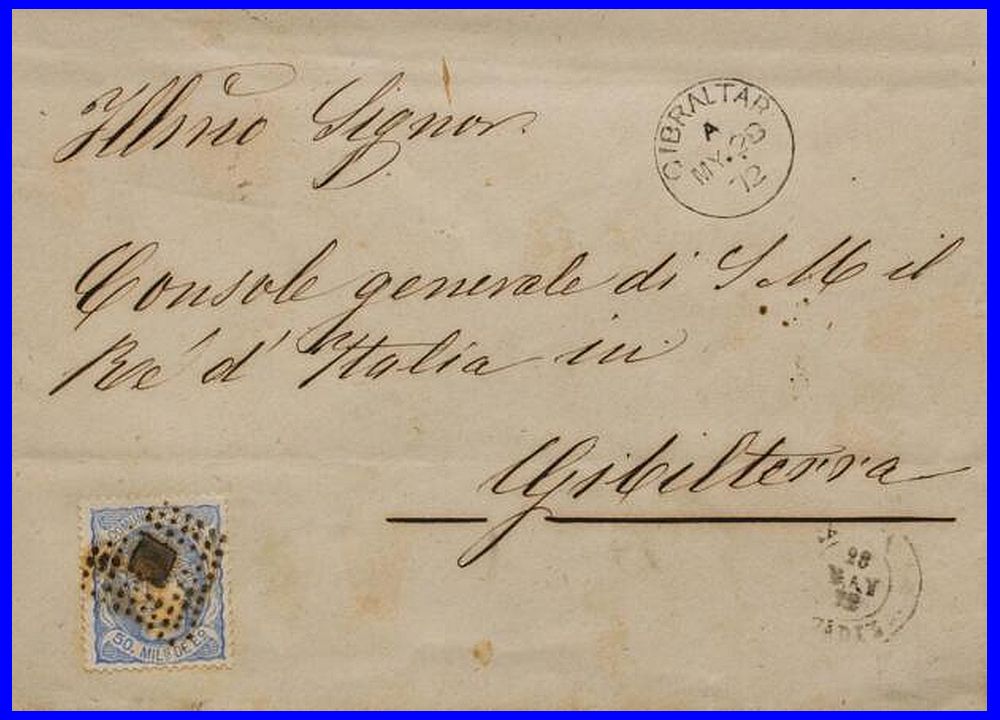 Illmo Signor
GIBRALTAR
A
MY 28
72
Console generale di S M il
Ré d'Italia in
Gibilterra
28
MAY
72
50. MILS DE Eo